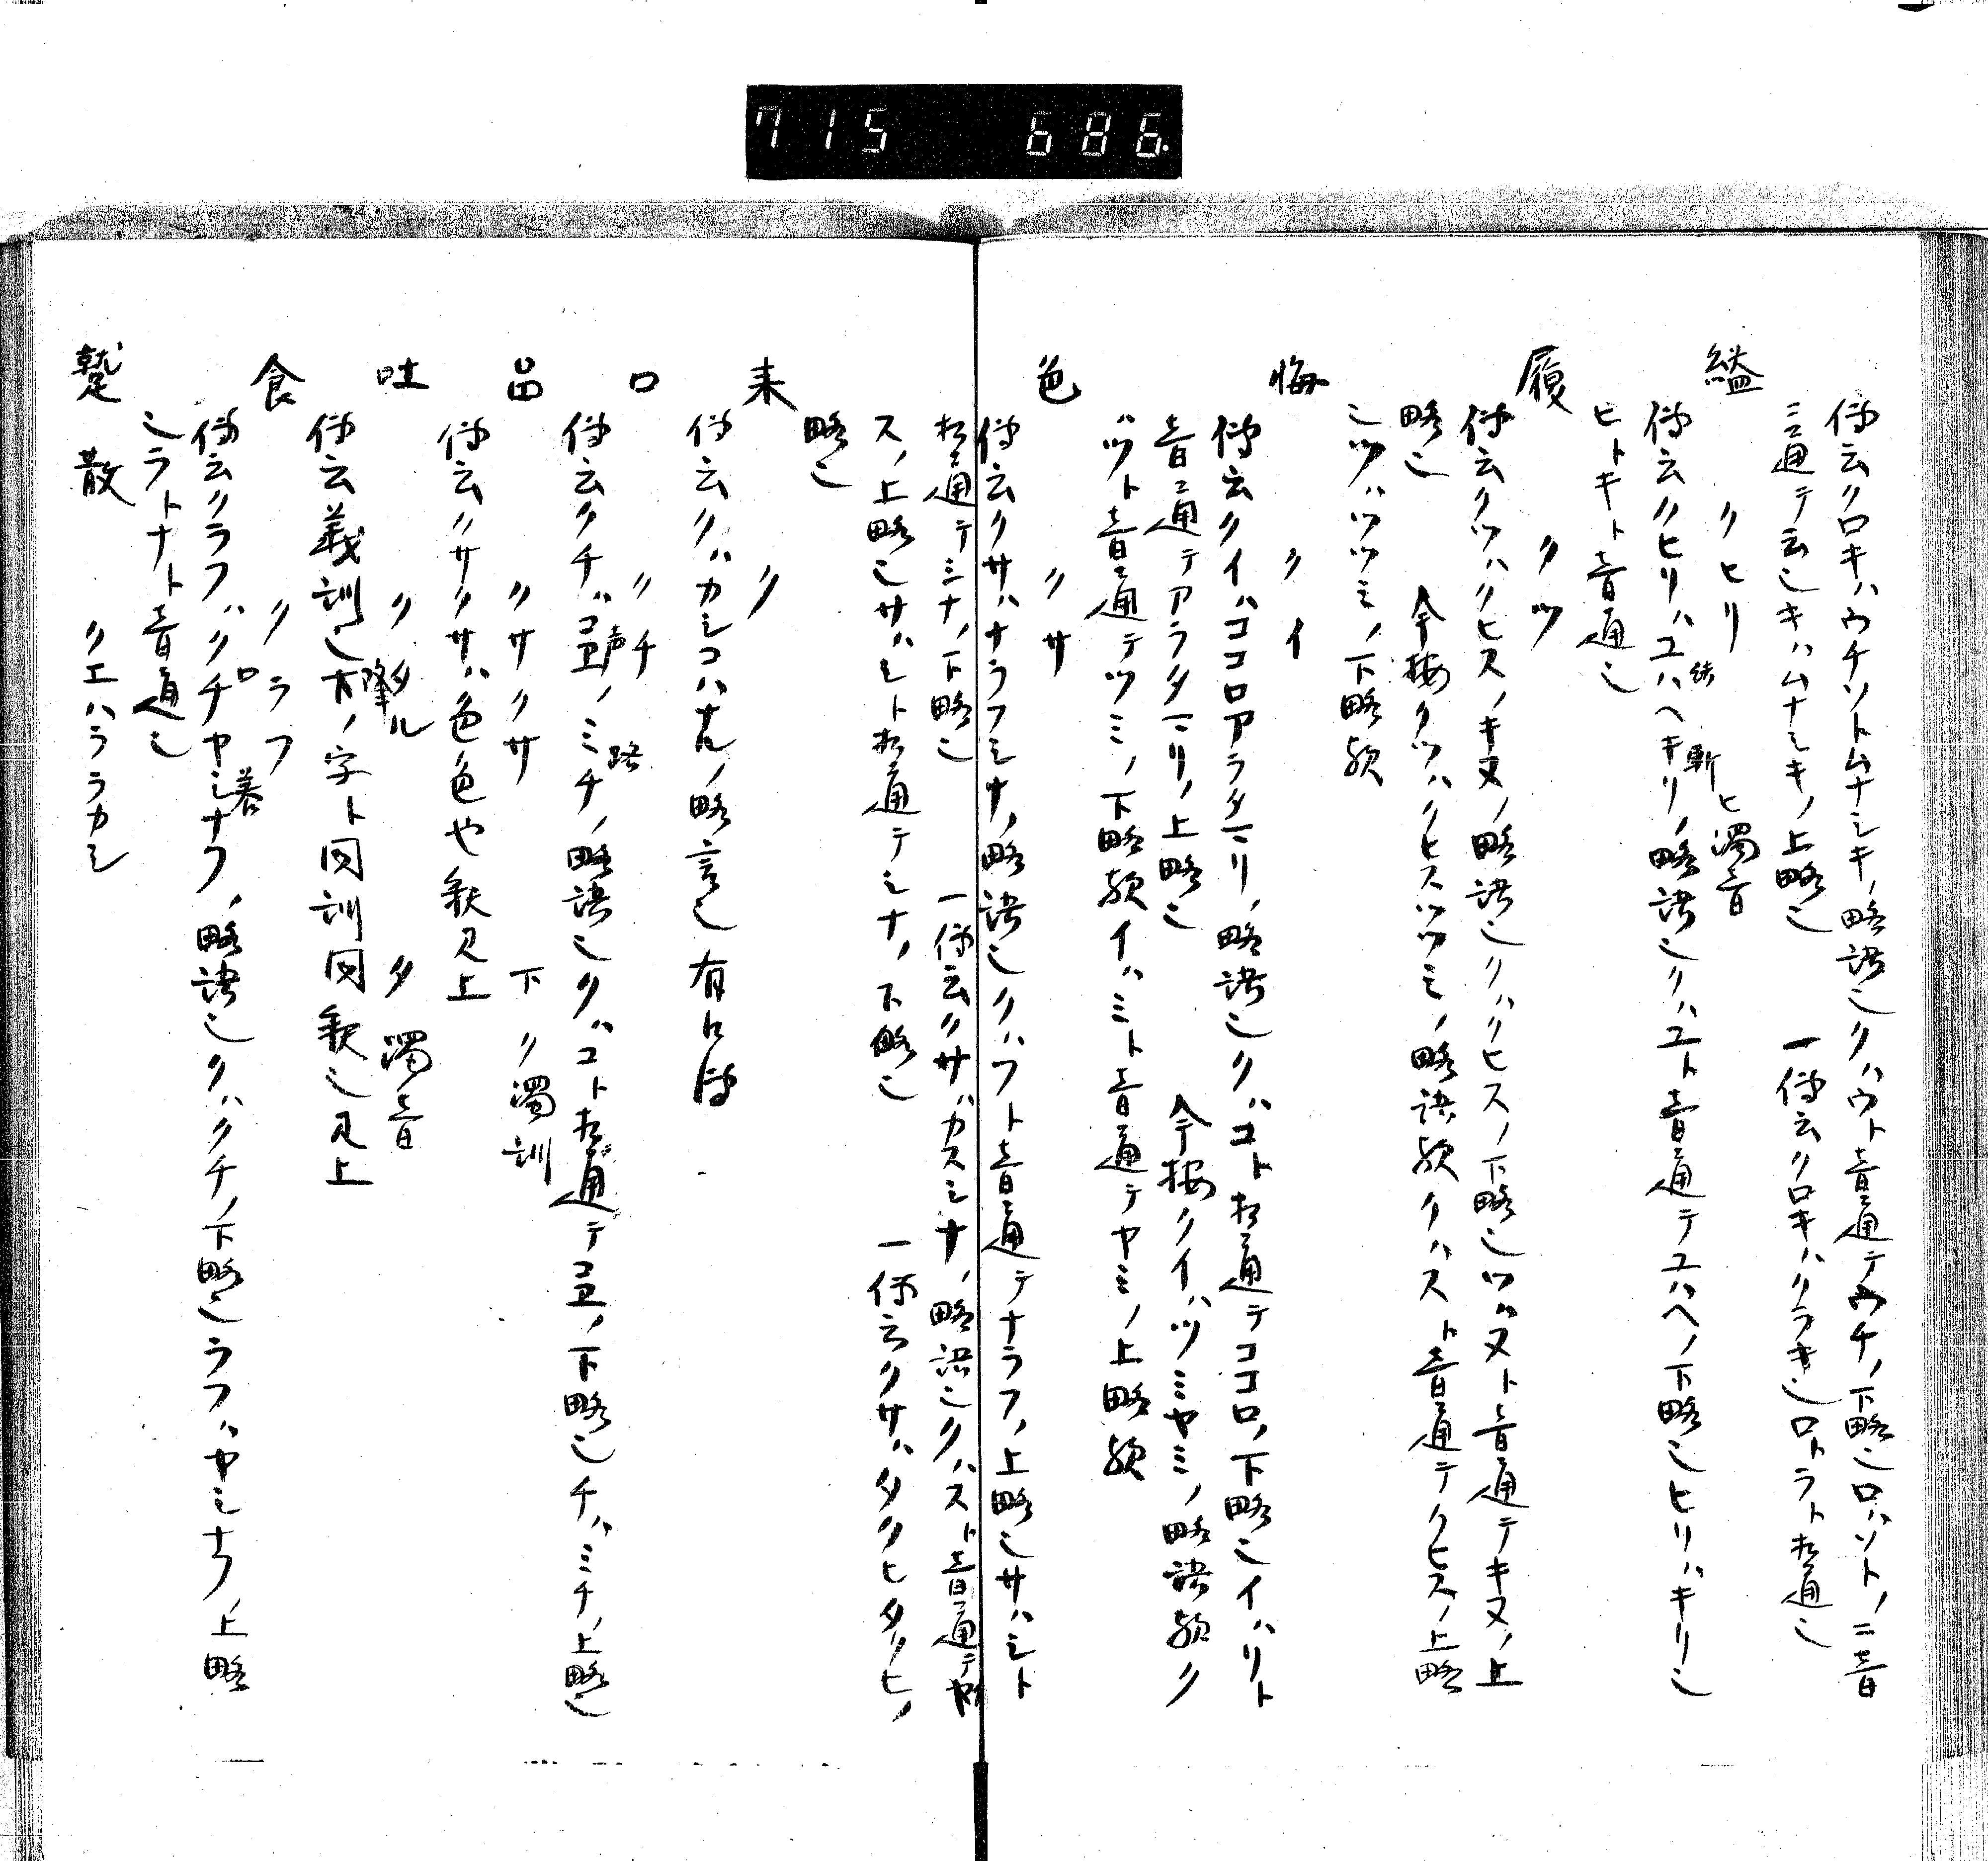 715 686.
伝云クロキハウチソトムナシキノ略語也クハウト音通テウチノ下略也ロハソトノ二音
ニ通テ云シキハムナシキノ上略也 一伝云クロキハクラキ也ロトラト相通也
縊 クヒリ ヒ濁音
伝云クヒリハユハヘキリノ略語也クハユト音通テユハヘノ下略也ヒリハキリ也
結 斬
ヒトキト音通也
履 クツ
伝云クツハクヒスノキヌノ略語也クハクヒスノ下略也ツハヌト音通テキヌノ上
略也 今按クツハクヒスツツミノ略語歟クハスト音通テクヒスノ上略
也ツハツツミノ下略歟
悔 クイ
伝云クイハココロアラタマリノ略語也クハコト相通テココロノ下略也イハリト
音通テアラタマリノ上略也 今按クイハツミヤミノ略語歟ク
ハツト音通テツミノ下略歟イハミト音通テヤミノ上略歟
色 クサ
伝云クサハナラフシナノ略語也クハフト音通テナラフノ上略也サハシト
相通テシナノ下略也 一伝云クサハカスシナノ略語也クハスト音通テカ
スノ上略也サハシト相通テシナノ下略也 一伝云クサハタクヒタクヒノ
略也
来 ク
伝云クハカシコハナルノ略言也有口伝
口 クチ
伝云クチハコヱノミチノ略語也クハコト相通テコヱノ下略也チハミチノ上略也
声 路
品 クサクサ 下ク濁訓
伝云クサクサハ色色也釈見上
吐 クタル タ濁音
降
伝云義訓也下ノ字ト同訓同釈也見上
食 クラフ
伝云クラフハクチヤシナフノ略語也クハクチノ下略也ラフハヤシナフノ上略
口 養
也ラトナト音通也
蹵散 クエハララカシ